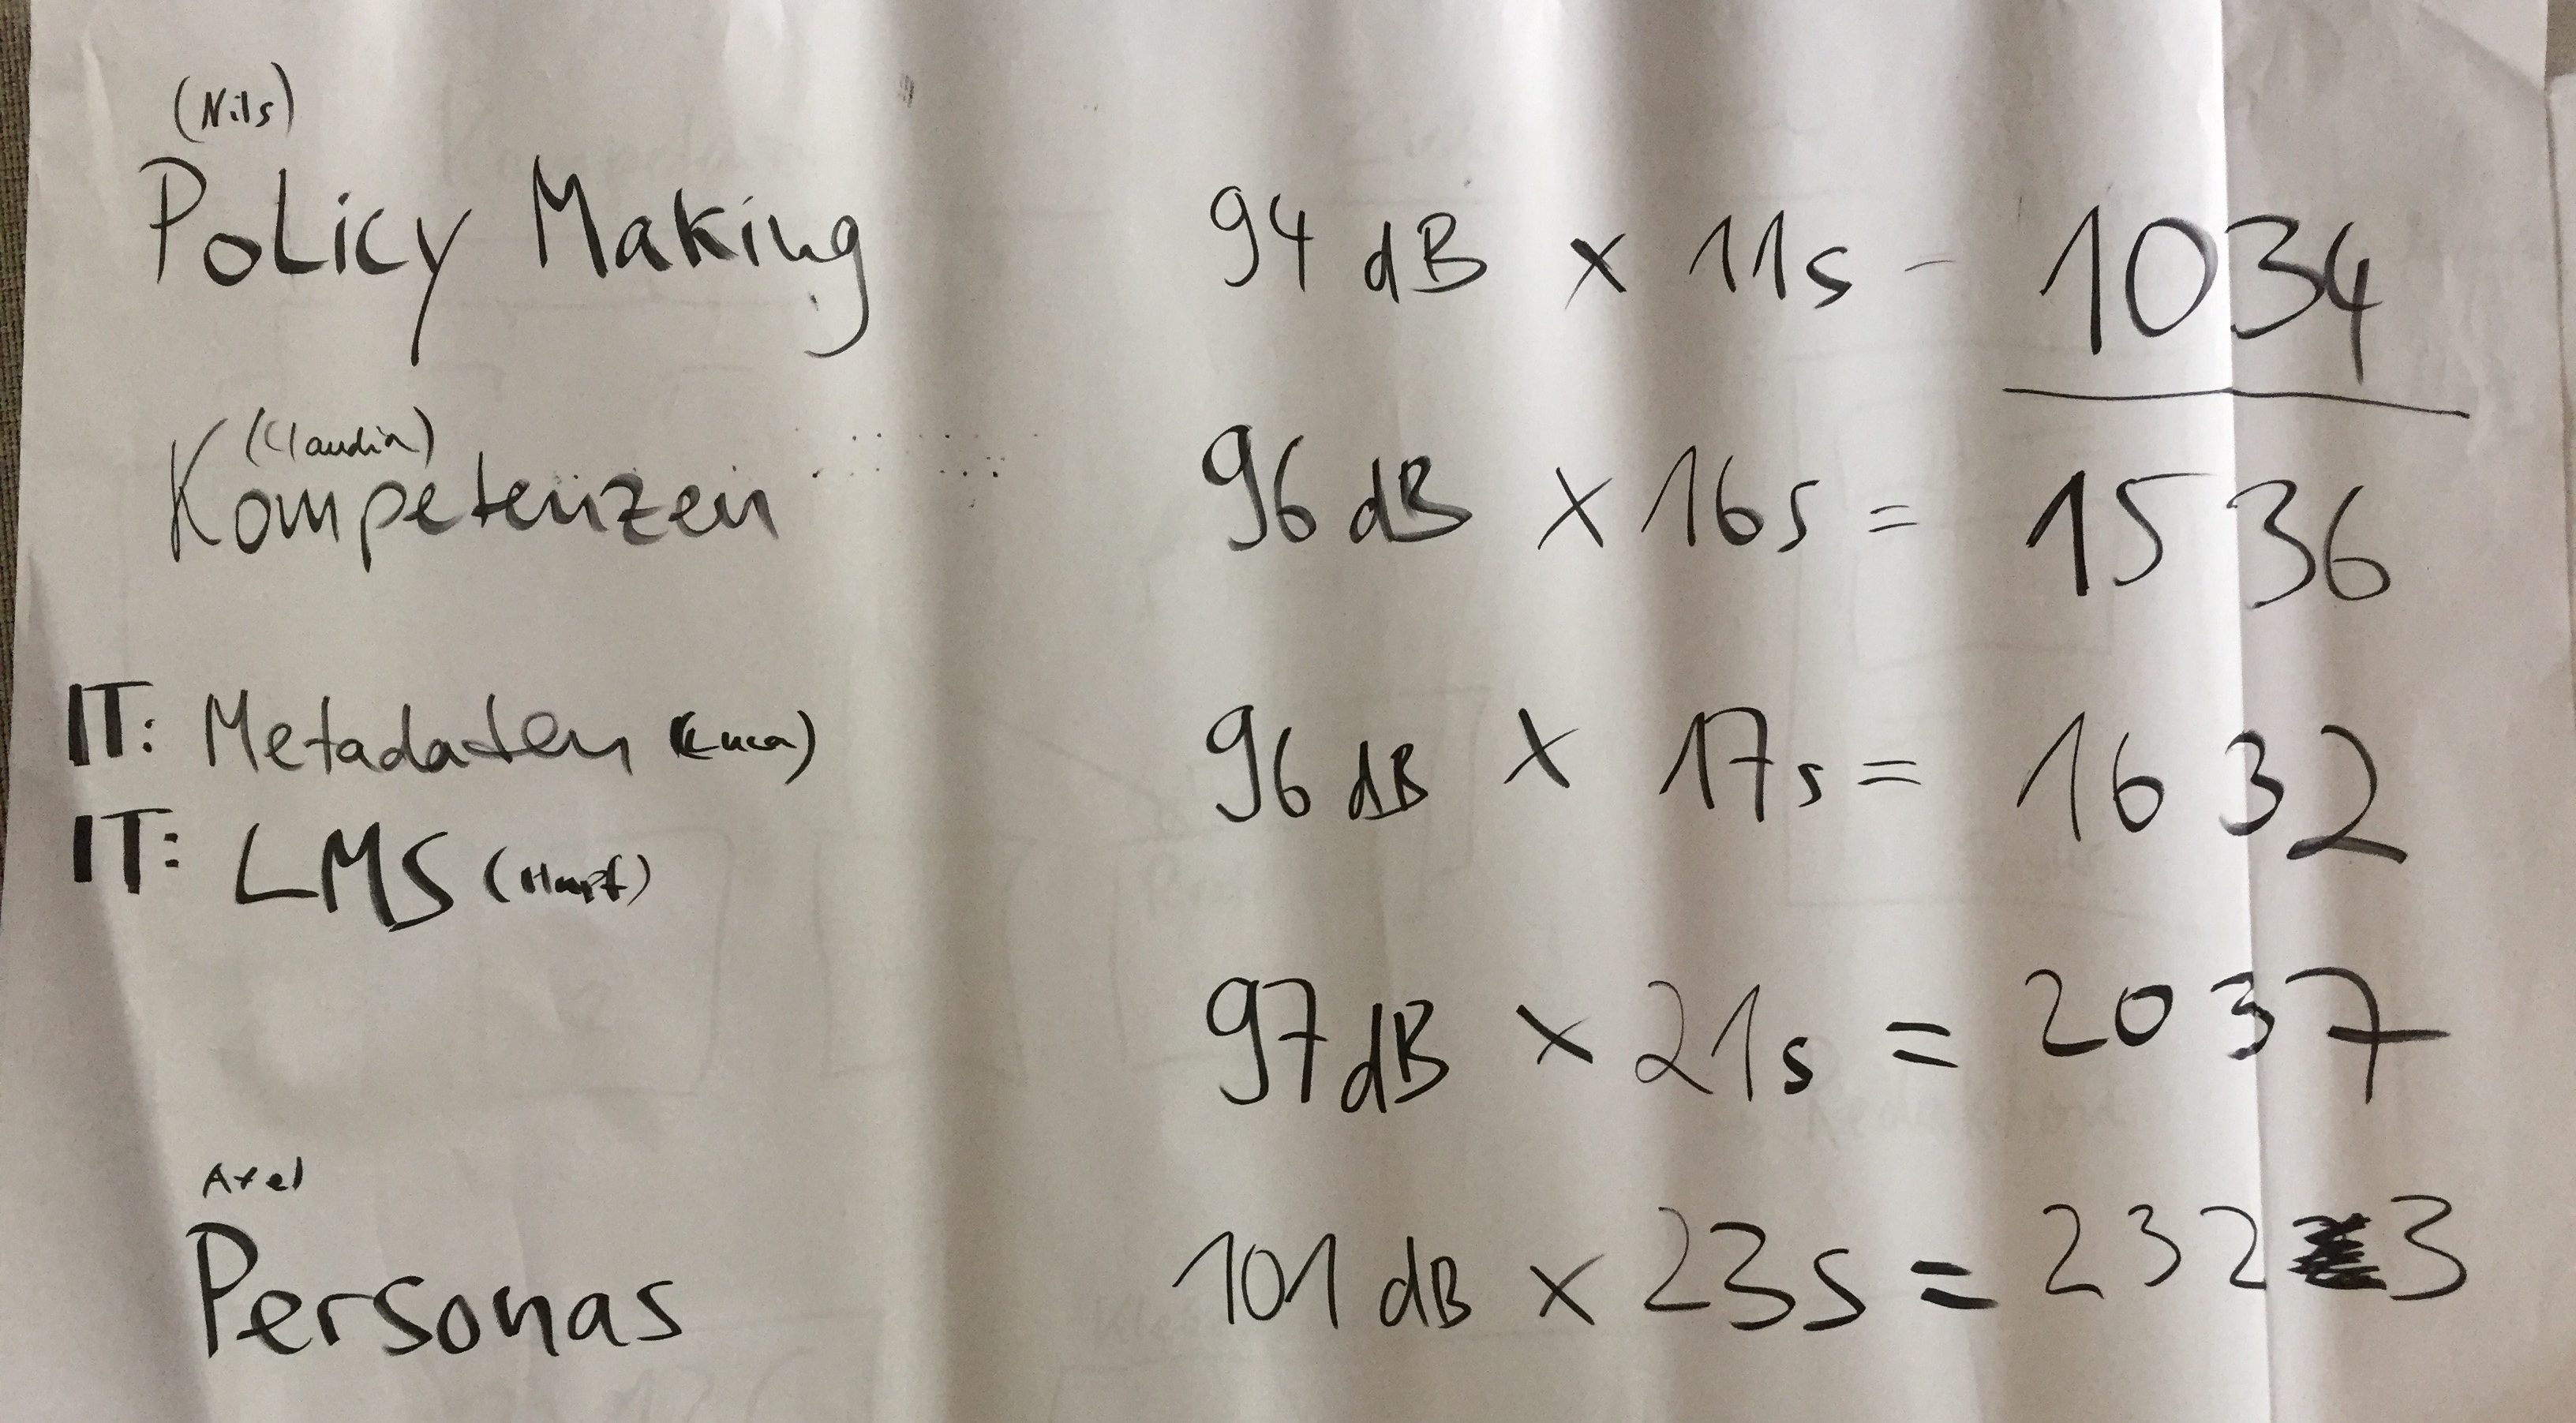 (Nils)
Policy Making 94 dB x 11s - 1034
(Claudia)
Kompetenzen 96 dB x 16s = 1536
IT: Metadaten (Luca) 96 dB x 17s = 1632
IT: LMS
97 dB x 21s = 2037
Axel
Personas 101 dB x 23s = 2323